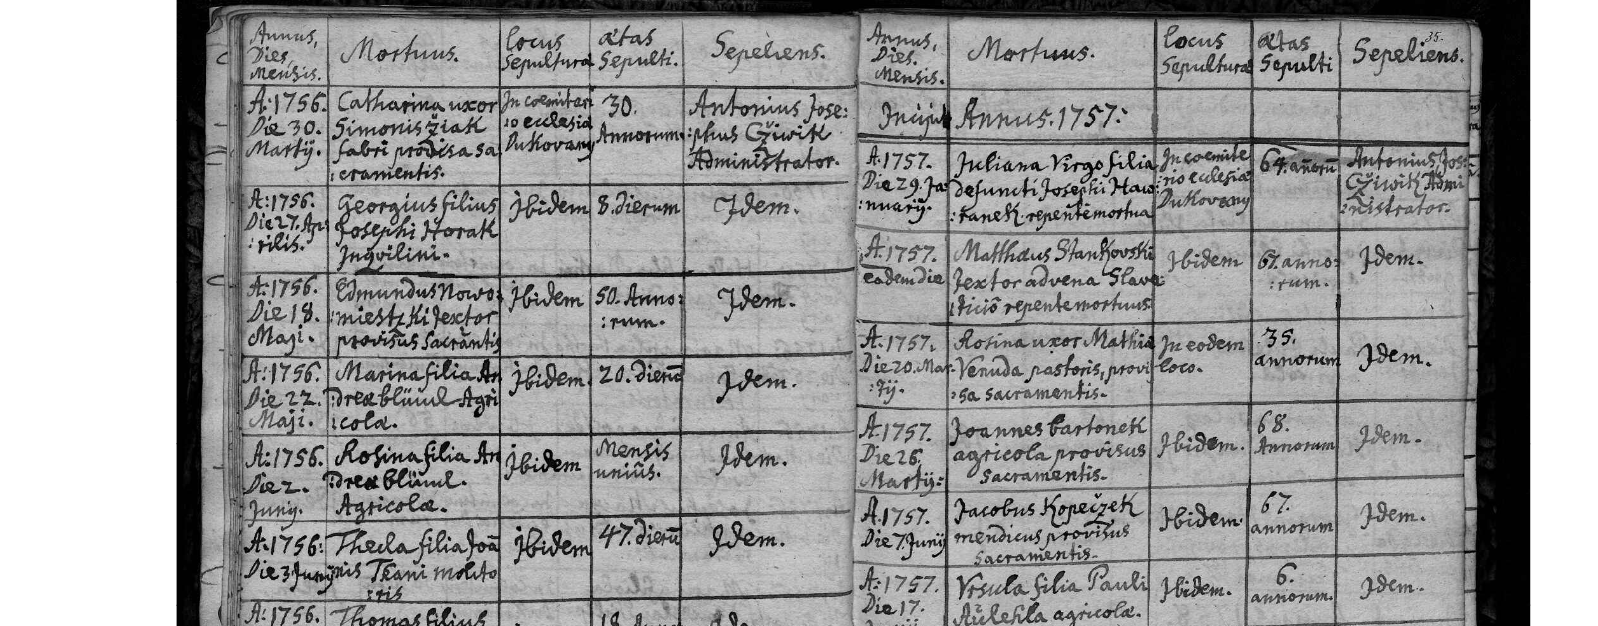 Annus,
Dies,
Mensis.
Mortuus.
locus
Sepulturæ
ætas
Sepulti.
Sepeliens.
A: 1756.
Die 30.
Martij.
Catharina uxor
Simonis Žiak
fabri provisa sa
:cramentis.
In coemiteri
:o ecclesiæ
Dukovany
30.
Annorum.
Antonius Jose:
:phus Cžiwik
Administrator.
A: 1756.
Die 27. Ap:
:rilis.
Georgius filius
Josephi Horak
Inqvilini.
Ibidem
8. dierum
Idem.
A: 1756.
Die 18.
Maji.
Edmundus Nowo:
:miestzki Textor
provisus Sacrāntis
Ibidem
50. Anno:
:rum.
Idem.
A: 1756.
Die 22.
Maji.
Marina filia An
:dreæ blüml Agri
:colæ.
Ibidem.
20. dierū
Idem.
A: 1756.
Die 2.
Junij.
Rosina filia An
:dreæ blüml.
Agricolæ.
Ibidem
Mensis
unius.
Idem.
A: 1756:
Die 3 Junij
Thecla filia Joā
nis Tkani molito
:ris
Ibidem
47. dierū
Idem.
A: 1756.
Thomas filius
18. Anno
35.
Annus,
Dies.
Mensis.
Mortuus.
locus
Sepulturæ
ætas
Sepulti
Sepeliens.
Incipit Annus. 1757:
A. 1757.
Die 29. Ja:
:nuarij.
Juliana Virgo filia
defuncti Josephi Haw
:ranek repente mortua
In coemite
:rio ecclesiæ
Dukovany
64. añorū
Antonius Jos:
Cžiwik Admi
:nistrator.
A. 1757.
eadem die
Matthæus Stankovski
Textor advena Slavo
:ticiō repente mortuus
Ibidem
67. anno:
:rum.
Idem.
A: 1757.
Die 20. Mar
:tij.
Rosina uxor Mathiæ
Venuda pastoris, provi
:sa sacramentis.
In eodem
loco.
35.
annorum
Idem.
A: 1757.
Die 26.
Martij:
Joannes bartonek
agricola provisus
Sacramentis.
Ibidem.
68.
Annorum
Idem.
A. 1757.
Die 7. Junij
Jacobus Kopeczek
mendicus provisus
Sacramentis.
Ibidem.
67.
annorum
Idem.
A: 1757.
Die 17.
Vrsula filia Pauli
Aulehla agricolæ.
Ibidem.
6.
annorum.
Idem.